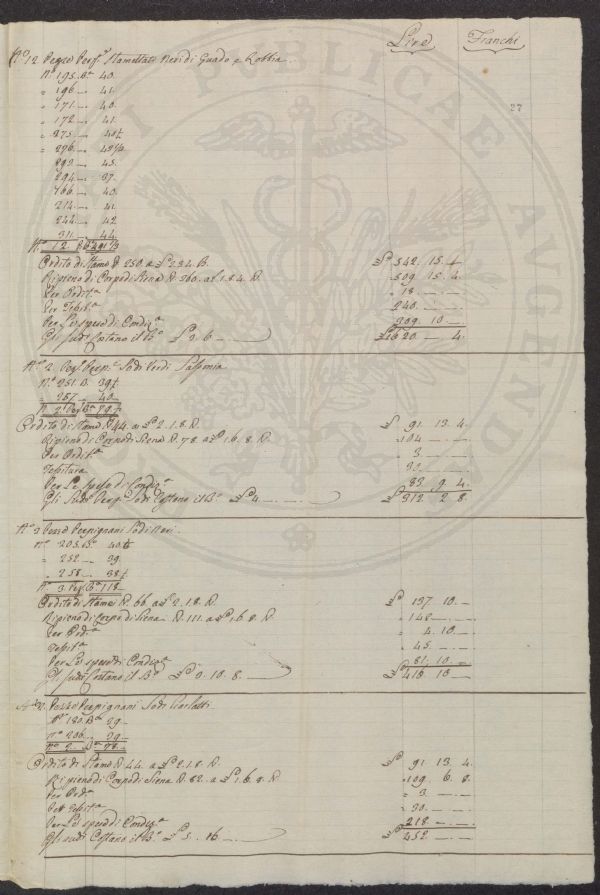 Lire Franchi
27
N° 12 Pezze Perp.ni Stamettati Neri di Guado e Robbia
N° 195. B.a 40.
" 196 — 41.
" 171 — 40.
" 172 — 41.
" 275 — 40½
" 276 — 42⅓
292 — 45.
294 — 37.
166 — 40.
214 — 41.
244 — 42
311 — 44.
N.° 12 B.a
Ordito di Stame 250. a 2.3.4. £ 542. 15. 4
Ripieno di Corpo di Siena 360. a 1. 8. 4. 509. 15. 4.
Per Ordit.a " 18. — —
Per Tessit.a 240. — —
Per Le spese di Condiz.a 309. 10 —
Gli Sud.i Costano il B.o £ 3. 6. — £ 1620 — 4.
N.° 2 Pez. Perp.ni Sodi Verdi Sassonia
N.° 251. B. 39½
" 257 — 40
N. 2 Pez. B.a 79½
Ordito di Stame 44. a £ 2. 1. 8. £ 91. 13. 4.
Ripieno di Corpo di Siena 78. a £ 1. 6. 8. " 104 — —
Per Ordit.a " 3. — —
Tessitura " 30. — —
Per Le Spese di Condiz.a 83. 9. 4.
Gli Sud.i Perp.ni Sodi Costano il B.o £ 4. — £ 312. 2. 8.
N.° 3 Pezze Perpignani Sodi Neri.
N.° 205. B.a 40½
" 252 — 39
" 258 — 38½
N° 3 Pez. B.a 118
Ordito di Stame 66. a £ 2. 1. 8. £ 137. 10. —
Ripieno di Corpo di Siena 111. a £ 1. 6. 8. " 148 — —
Per Ord.a " 4. 10. —
Tessit.a " 45. — —
Per Le spese di Condiz.a 81. 10. —
Gli Sud.i Costano il B.o £ 3. 10. 8. £ 416. 10 —
N° 2. Pezze Perpignani Sodi Scarlatti
N.° 180. B.a 39 —
N° 206. — 39 —
N° 2 — B.a 78. —
Ordito di Stame 44. a £ 2. 1. 8. £ 91. 13. 4.
Ripieno di Corpo di Siena 82. a £ 1. 6. 8. " 109. 6. 8.
Per Ord.a " 3 — —
Per Tessit.a " 30. — —
Per Le spese di Condiz.a 218. — —
Gli sud.i Costano il B.o £ 5. 16. — £ 452 — —